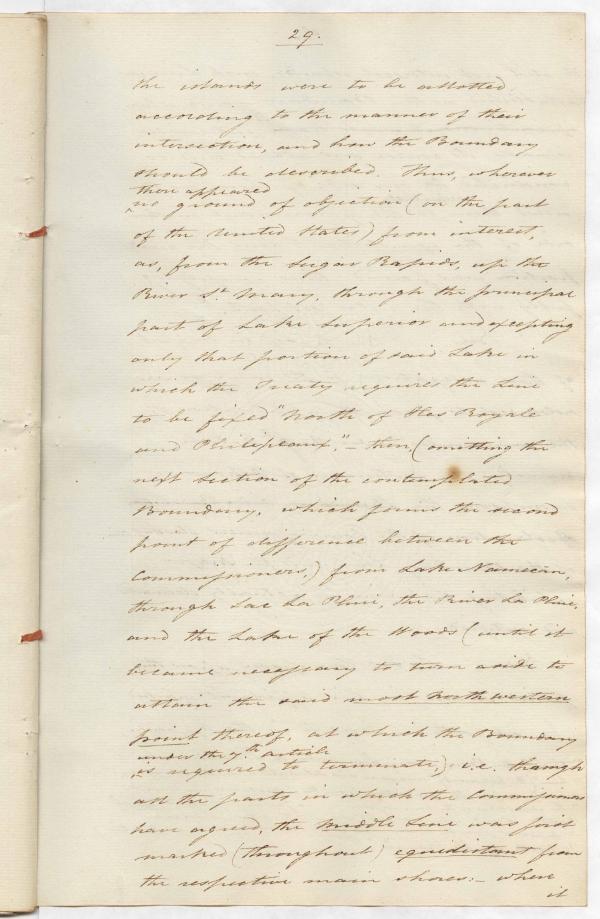 29.
the islands were to be allotted
according to the manner of their
intersection, and how the Boundary
should be described. Thus, wherever
there appeared
no ground of objection (on the part
of the United States) from interest,
as, from the Sugar Rapids, up the
River St. Mary, through the principal
part of Lake Superior and excepting
only that portion of said Lake in
which the Treaty requires the Line
to be fixed "North of Iles Royale
and Philipeaux," - then, (omitting the
next section of the contemplated
Boundary, which forms the second
point of difference between the
Commissioners,) from Lake Namecan,
through Lac La Pluie, the River La Pluie,
and the Lake of the Woods (until it
became necessary to turn aside to
attain the said most North western
point thereof, at which the Boundary
under the 7th article
is required to terminate,) i.e. through
all the parts in which the Commissioners
have agreed, the middle Line was first
marked (throughout) equidistant from
the respective main shores:- where
it